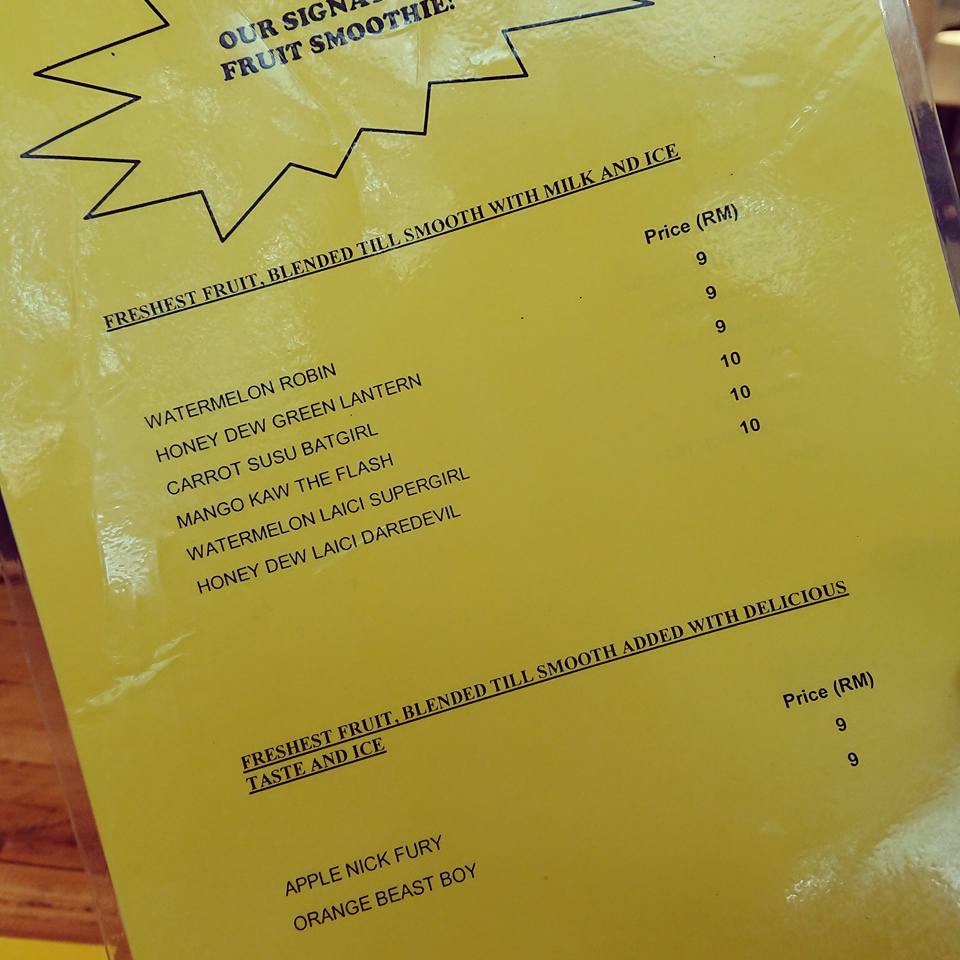 OUR
FRUIT SMOOTHIE!
FRESHEST FRUIT, BLENDED TILL SMOOTH WITH MILK AND ICE
Price (RM)
WATERMELON ROBIN 9
HONEY DEW GREEN LANTERN 9
CARROT SUSU BATGIRL 9
MANGO KAW THE FLASH 10
WATERMELON LAICI SUPERGIRL 10
HONEY DEW LAICI DAREDEVIL 10
FRESHEST FRUIT, BLENDED TILL SMOOTH ADDED WITH DELICIOUS
TASTE AND ICE
Price (RM)
APPLE NICK FURY 9
ORANGE BEAST BOY 9